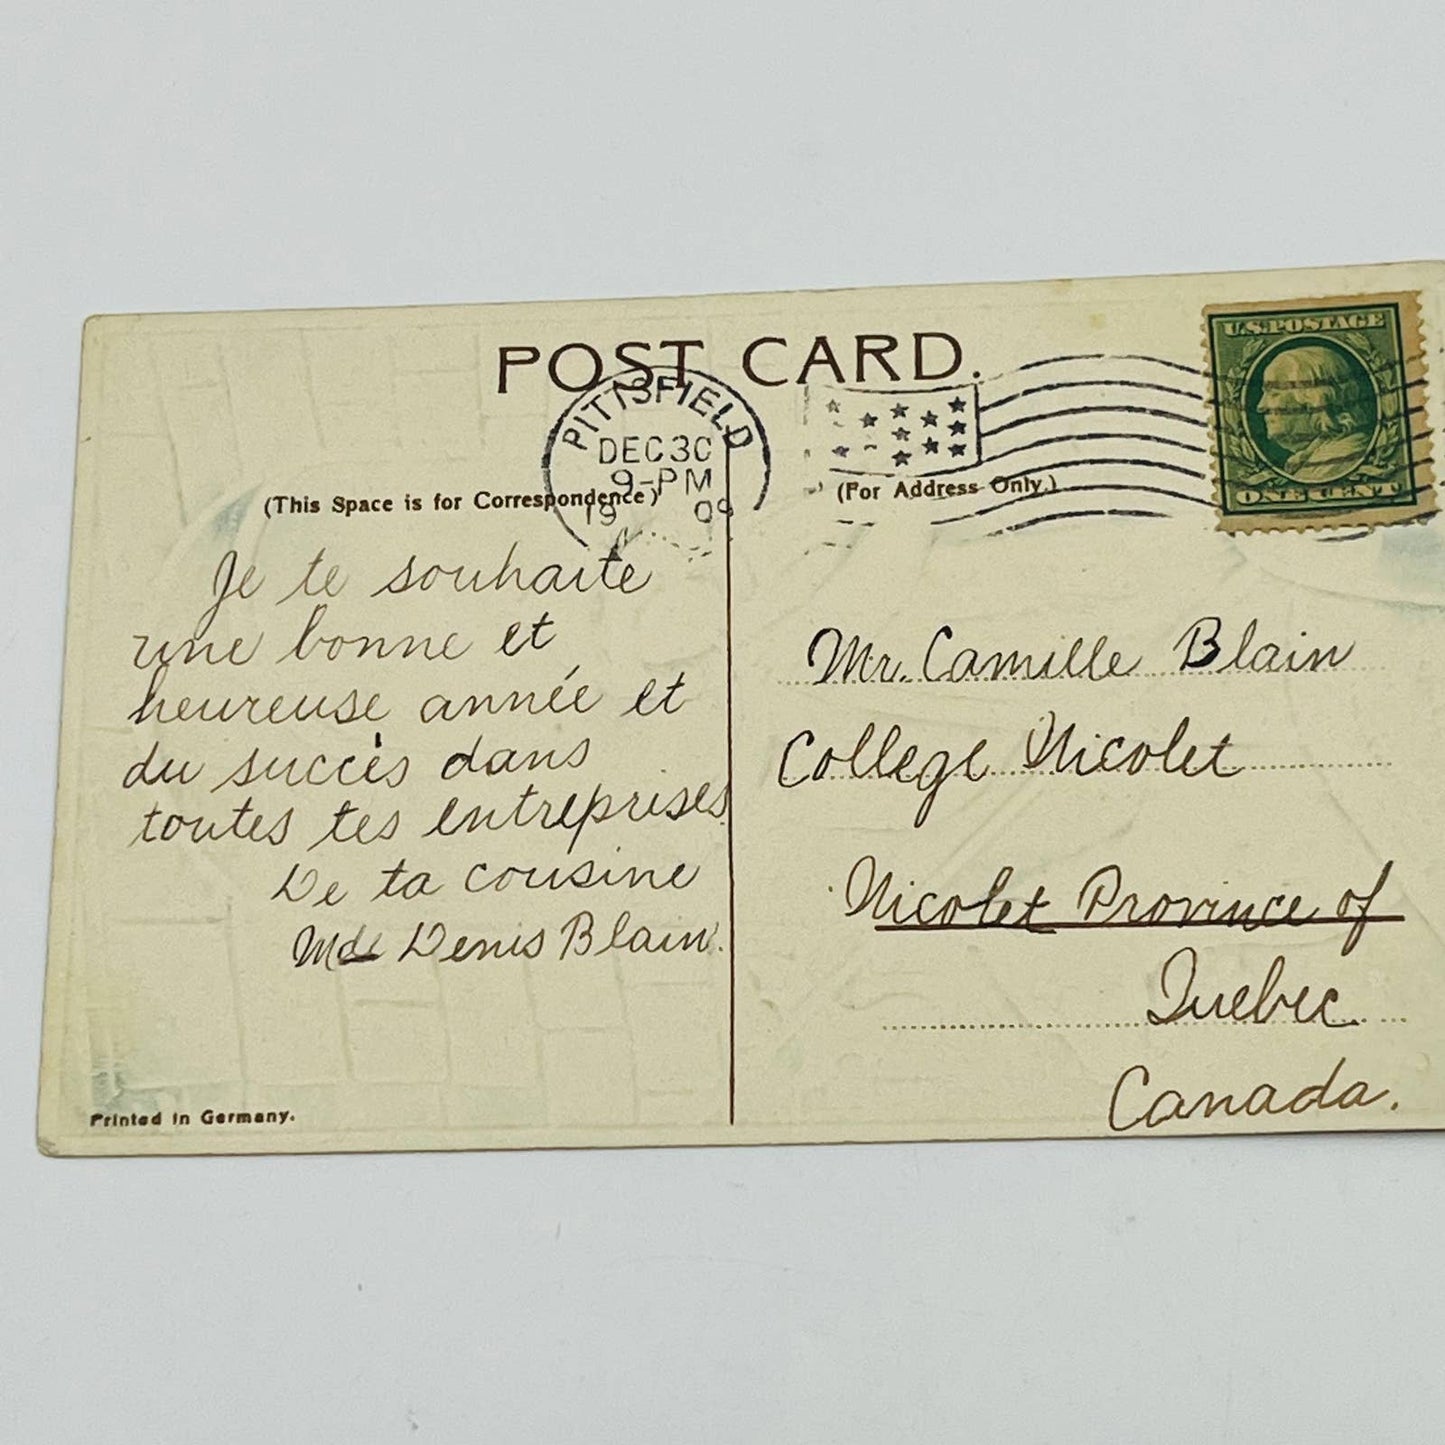 POST CARD.
PITTSFIELD
DEC 30
9-PM
19 09
U.S. POSTAGE
ONE CENT
(This Space is for Correspondence)
(For Address Only.)
Je te souhaite
une bonne et
heureuse année et
du succès dans
toutes tes entreprises.
De ta cousine
Mde Denis Blain.
Mr. Camille Blain
College Nicolet
Nicolet Province of
Quebec.
Canada.
Printed in Germany.